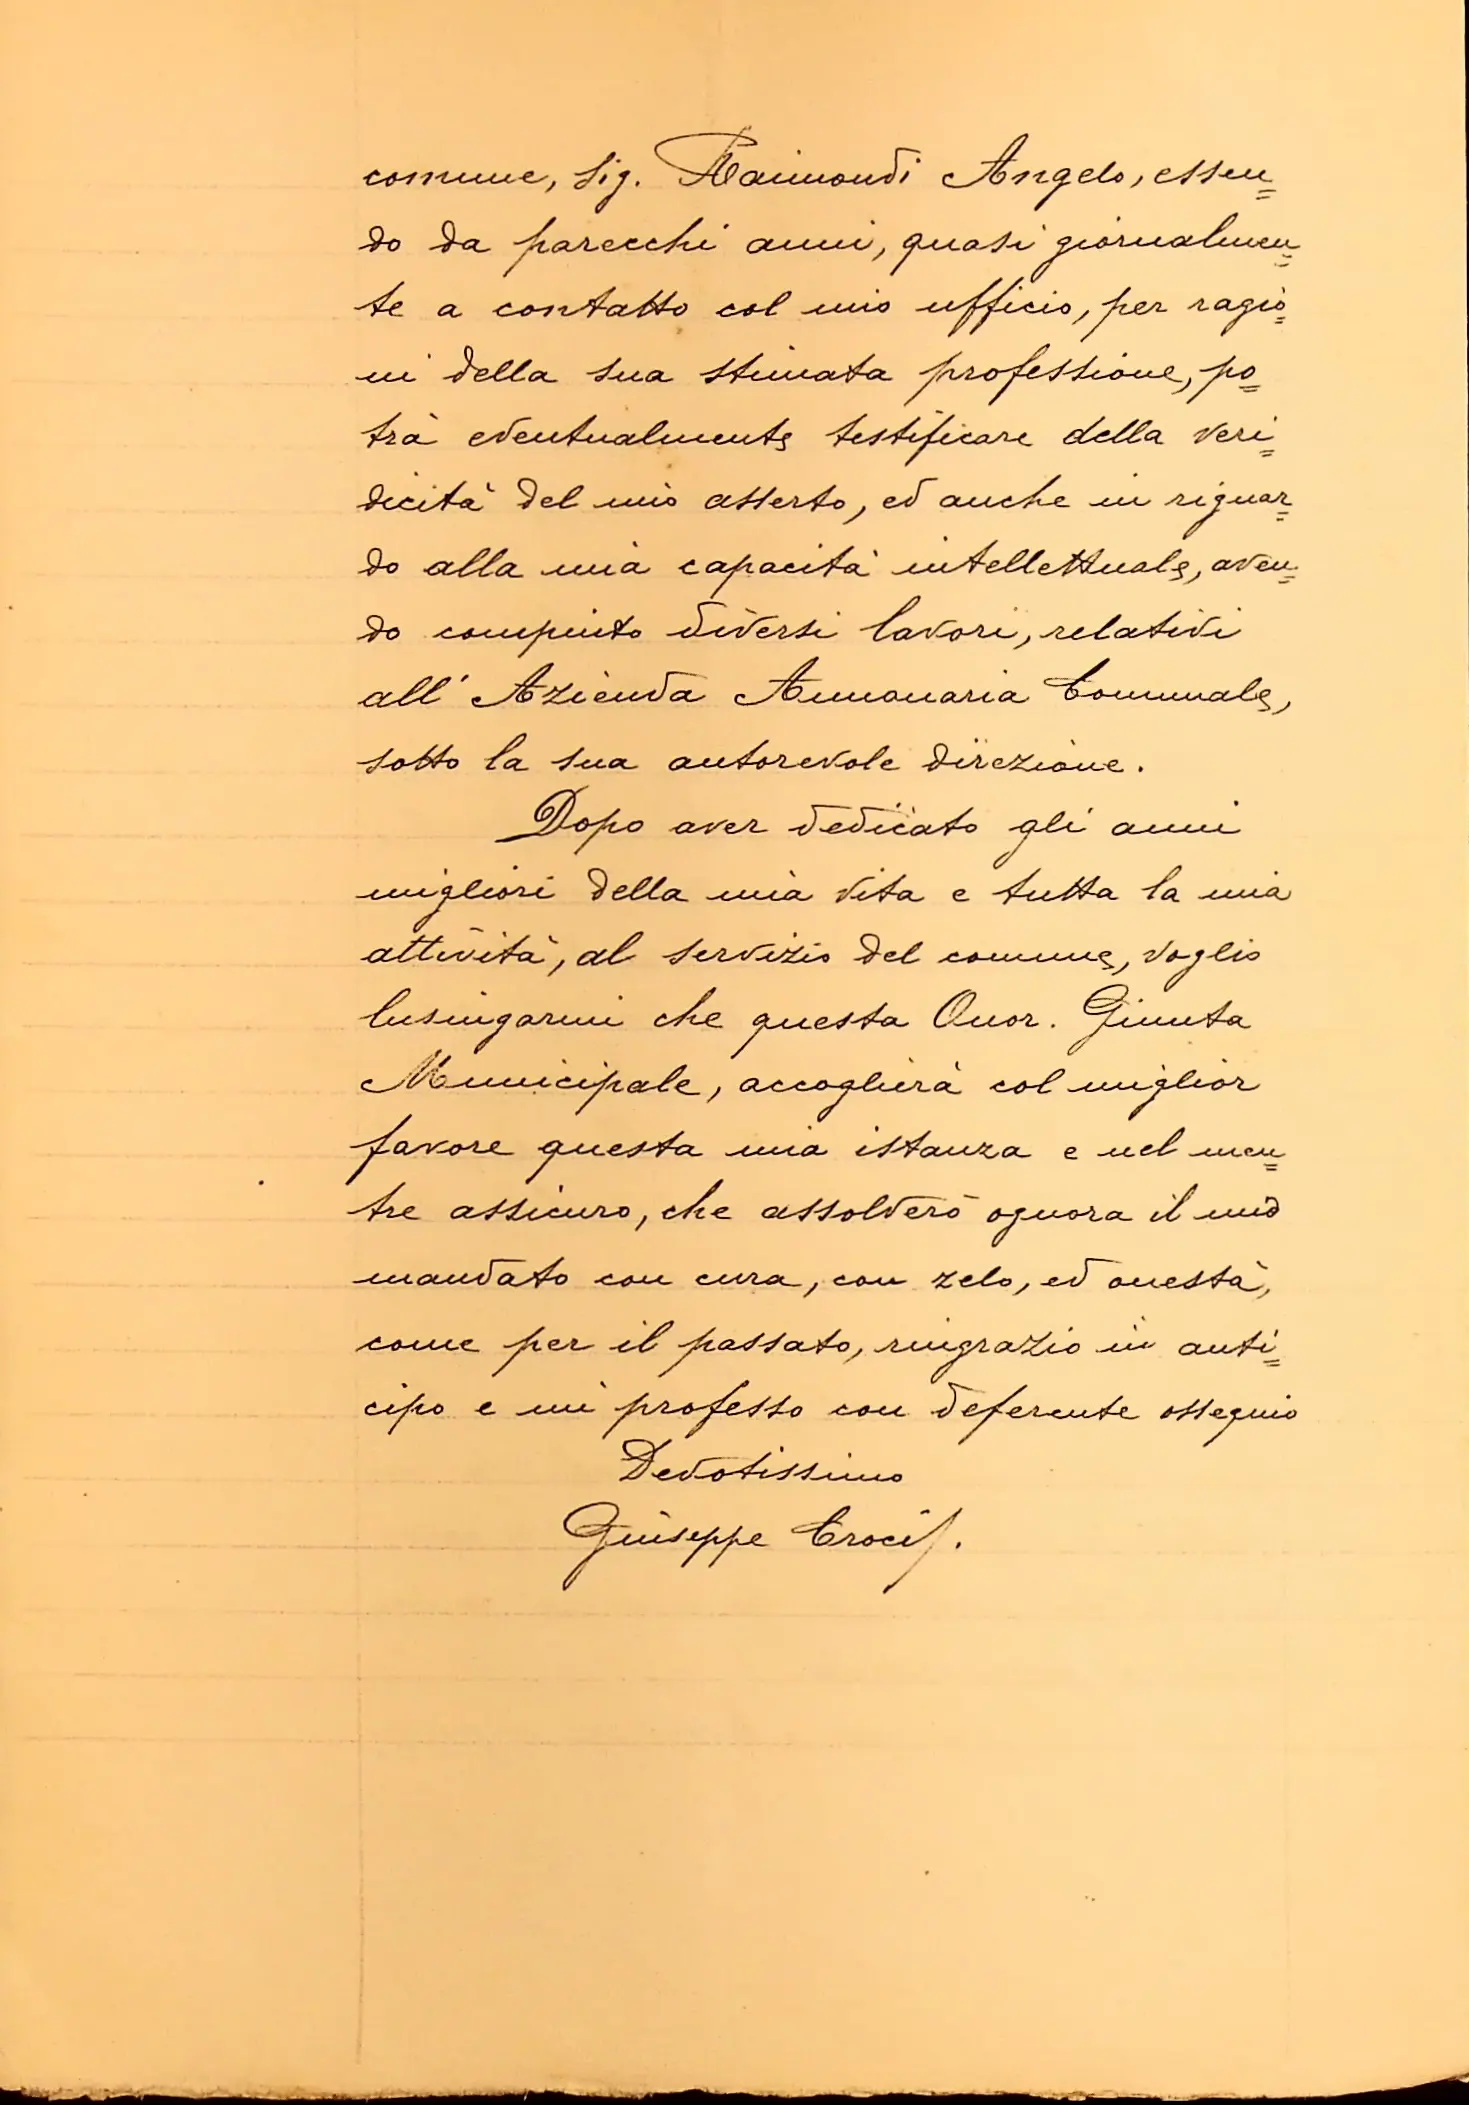 comune, Sig. Raimondi Angelo, essen=
do da parecchi anni, quasi giornalmen=
te a contatto col mio ufficio, per ragio=
ni della sua stimata professione, po=
trà eventualmente testificare della veri=
dicità del mio asserto, ed anche in riguar=
do alla mia capacità intellettuale, aven=
do compiuto diversi lavori, relativi
all' Azienda Annonaria Comunale,
sotto la sua autorevole direzione.
Dopo aver dedicato gli anni
migliori della mia vita e tutta la mia
attività, al servizio del comune, voglio
lusingarmi che questa Onor. Giunta
Municipale, accoglierà col miglior
favore questa mia istanza e nel men=
tre assicuro, che assolverò ognora il mio
mandato con cura, con zelo, ed onestà,
come per il passato, ringrazio in anti=
cipo e mi professo con deferente ossequio
Devotissimo
Giuseppe Croci.